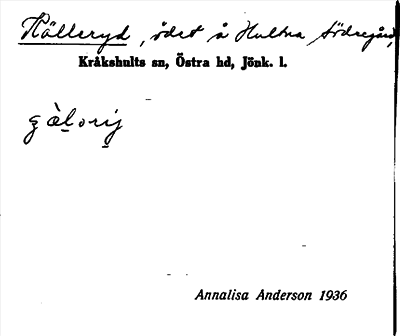 Källeryd, ödet å Hultna Södregård,
Kråkshults sn, Östra hd, Jönk. l.
gälorij
Annalisa Anderson 1936